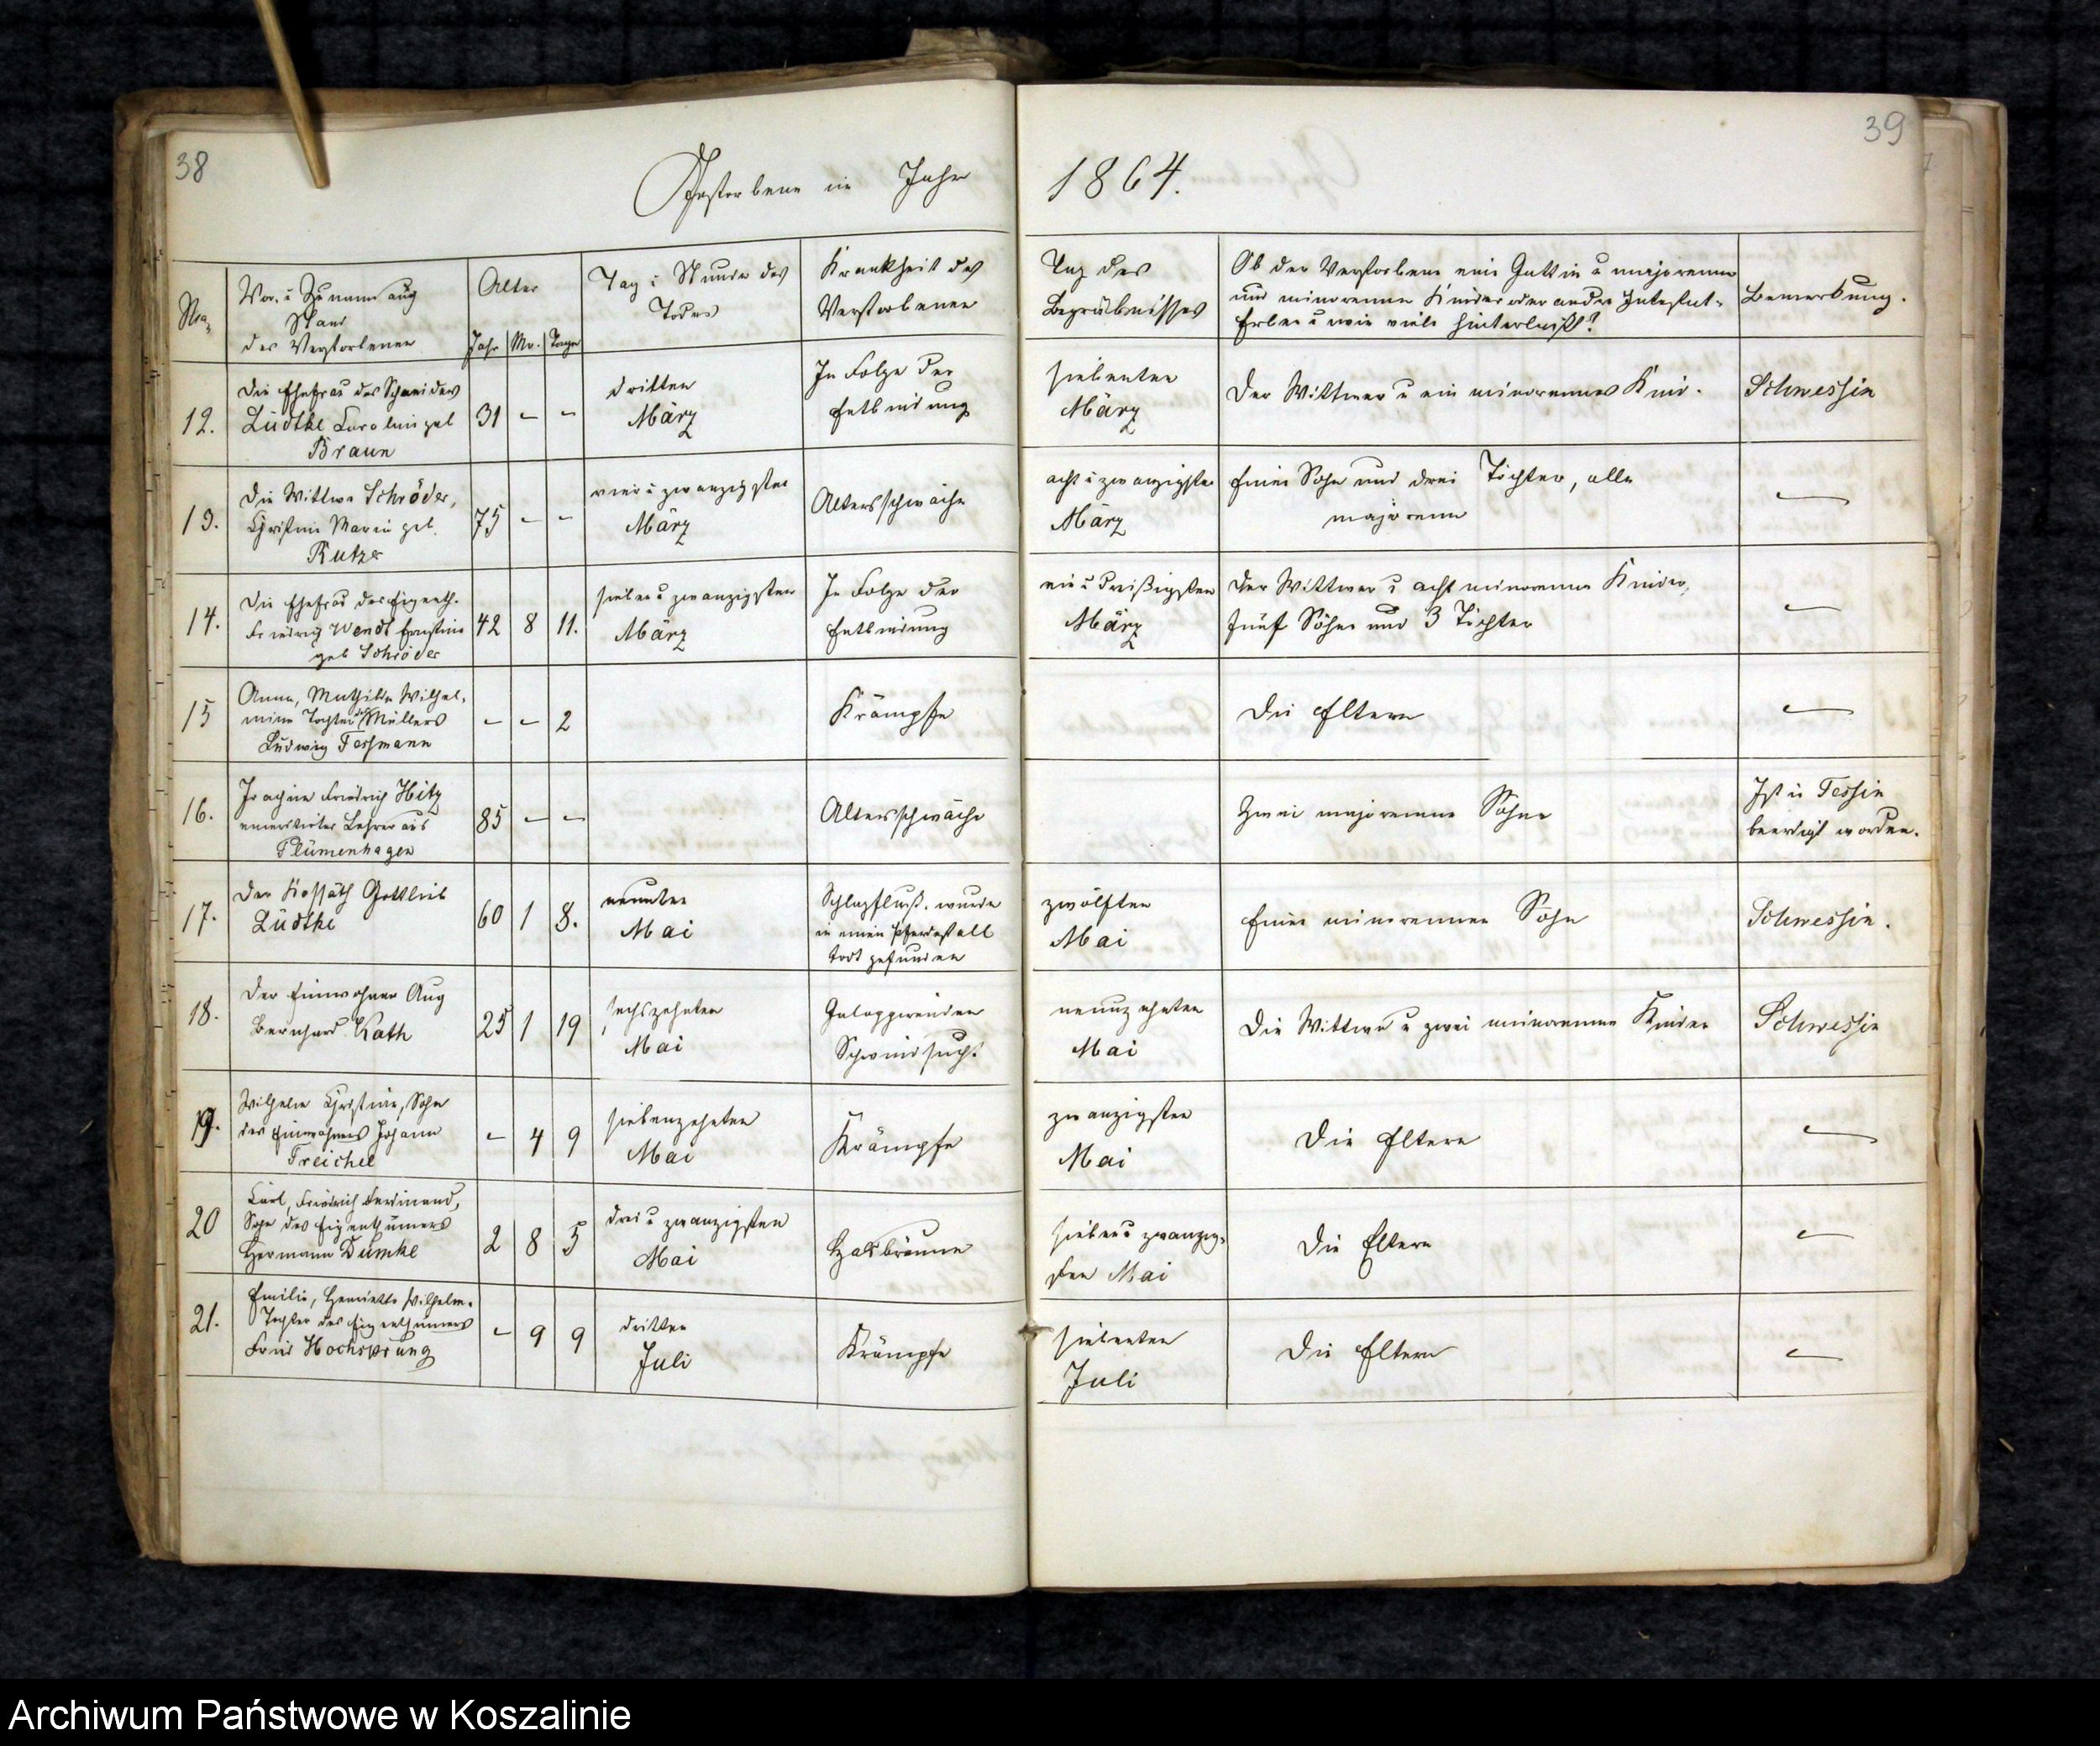 38
39
Gestorbene im Jahr 1864.
Nro.
Vor- u Zuname auch
Stand
des Verstorbenen
Alter
Jahr Mo. Tage
Tag u Stunde des
Todes
Krankheit des
Verstorbenen
Tag des
Begräbnisses
Ob der Verstorbene eine Gattin u majorenne
und minorenne Kinder oder andre Intestat-
Erben u wie viele hinterläßt?
Bemerkung.
12.
Die Ehefrau des Schneiders
Lüdtke Caroline geb
Braun
31 - -
dritten
März
In Folge der
Entbindung
siebenten
März
Der Wittwer u ein minorennes Kind.
Schwessin
13.
Die Wittwe Schröder,
Christine Marie geb.
Rutzer
75 - -
vier u zwanzigsten
März
Altersschwäche
acht u zwanzigsten
März
Einen Sohn und drei Töchter, alle
majorenn
-
14.
Die Ehefrau des Eigenth.
Friedrich Wendt Ernstine
geb Schröder
42 8 11.
sieben u zwanzigsten
März
In Folge der
Entbindung
ein u dreißigsten
März
Der Wittwer u acht minorenne Kinder,
fünf Söhne und 3 Töchter
-
15
Anna, Mathilde Wilhel-
mine Tochter des Müllers
Ludwig Tessmann
- - 2
Krämpfe
Die Eltern
-
16.
Joachim Friedrich Hitz
emeritirter Lehrer aus
Plümenhagen
85 - -
Altersschwäche
Zwei majorenne Söhne
Ist in Tessin
beerdigt worden.
17.
Der Kossäth Gottlieb
Lüdtke
60 1 8.
neunten
Mai
Schlagfluß. wurde
in einem Pferdestall
todt gefunden
zwölften
Mai
Einen minorennen Sohn
Schwessin.
18.
Der Einwohner Aug
Bernhard Kath
25 1 19
sechszehnten
Mai
Galoppirenden
Schwindsucht
neunzehnten
Mai
Die Wittwe u zwei minorenne Kinder
Schwessin
19.
Wilhelm Christian, Sohn
des Einwohners Johann
Treichel
- 4 9
siebenzehnten
Mai
Krämpfe
zwanzigsten
Mai
Die Eltern
-
20
Carl, Friedrich Ferdinand,
Sohn des Eigenthümers
Hermann Dumke
2 8 5
drei u zwanzigsten
Mai
Halsbräune
sieben u zwanzig-
sten Mai
Die Eltern
-
21.
Emilie, Henriette Wilhelm.
Tochter des Eigenthümers
Fried Hochsprung
- 9 9
dritten
Juli
Krämpfe
siebenten
Juli
Die Eltern
-
Archiwum Państwowe w Koszalinie